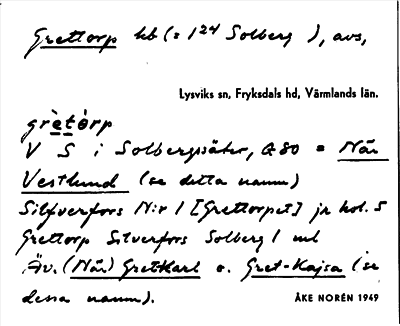 Grettorp hb (= 1²⁴ Solberg ), avs,
Lysviks sn, Fryksdals hd, Värmlands län.
grètòrp
V S i Solbergssäter, G 80 = När
Vestlund (se detta namn)
Silfverfors N:r 1 [Grettorpet] jr kol. S
Grettorp Silverfors Solberg 1 ml
Äv. (När) Gret-Karl o. Gret-Kajsa (se
dessa namn).
ÅKE NORÉN 1949